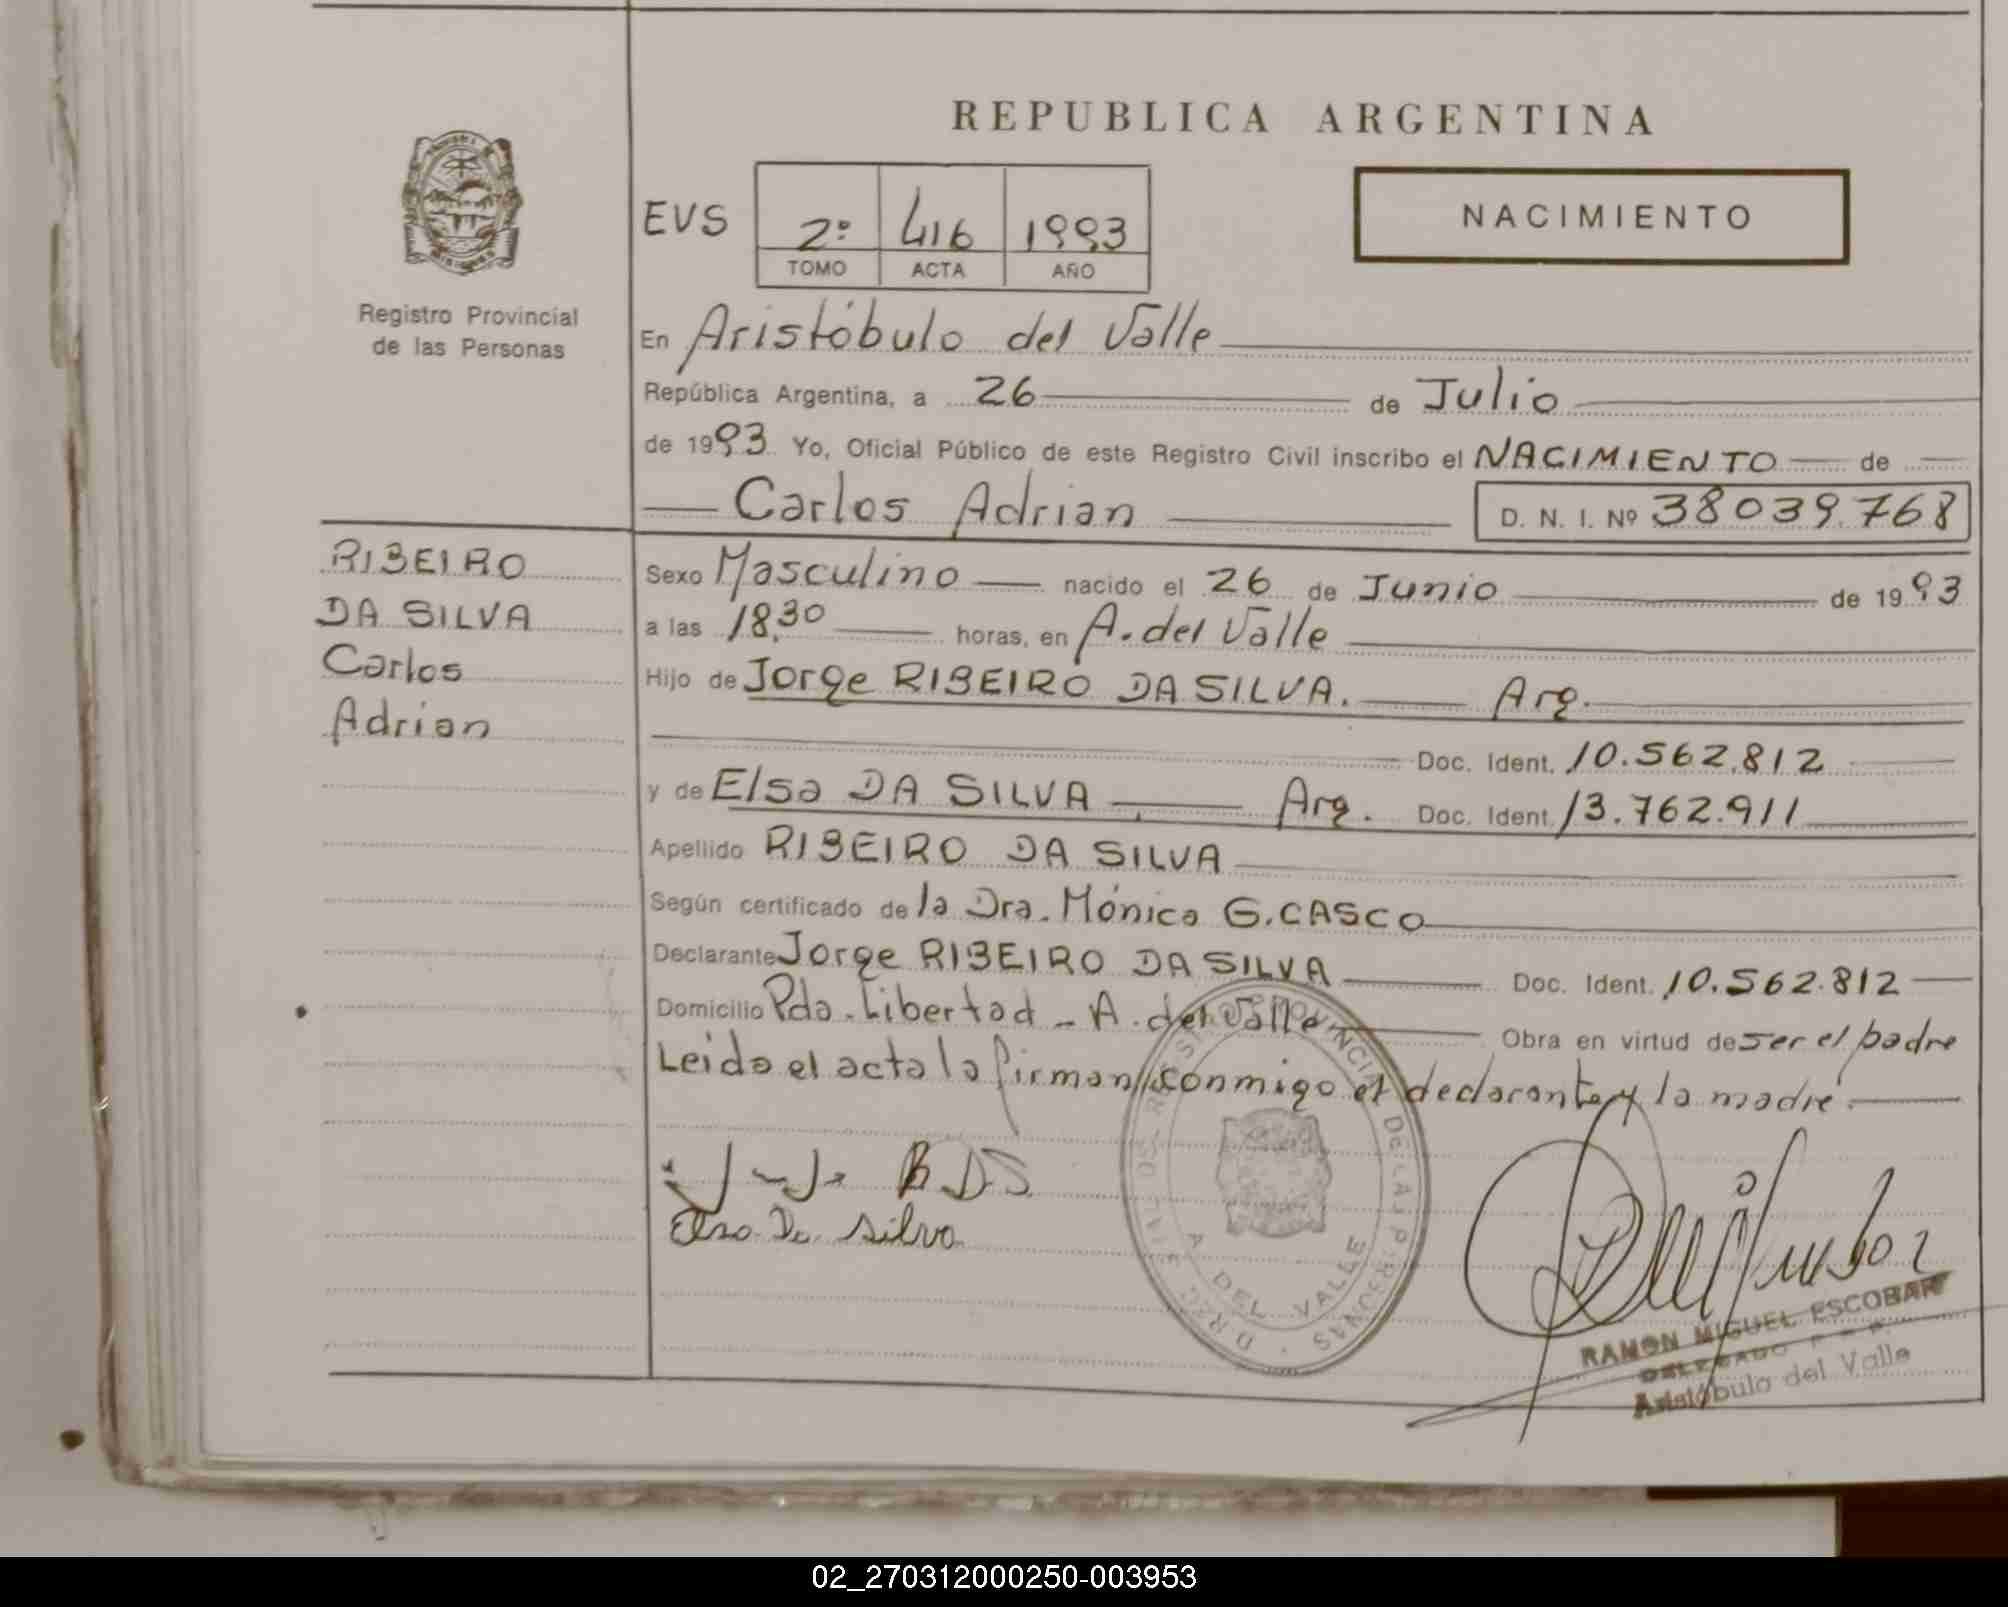 REPUBLICA ARGENTINA
NACIMIENTO
EVS 2º 416 1993
TOMO ACTA AÑO
Registro Provincial
de las Personas
En Aristóbulo del Valle
República Argentina, a 26 de Julio
de 1993 Yo, Oficial Público de este Registro Civil inscribo el NACIMIENTO de
Carlos Adrian D. N. I. Nº 38039.768
RIBEIRO
DA SILVA
Carlos
Adrian
Sexo Masculino nacido el 26 de Junio de 1993
a las 18,30 horas, en A. del Valle
Hijo de Jorge RIBEIRO DA SILVA. Arg.
Doc. Ident. 10.562.812
y de Elsa DA SILVA Arg. Doc. Ident. 13.762.911
Apellido RIBEIRO DA SILVA
Según certificado de la Dra. Mónica G. CASCO
Declarante Jorge RIBEIRO DA SILVA Doc. Ident. 10.562.812
Domicilio Pdo. Libertad - A. del Valle Obra en virtud de ser el padre
Leida el acta la firman conmigo el declarante y la madre.
Elsa Da silva
A. DEL VALLE
RAMON MIGUEL ESCOBAR
DELEGADO
Aristóbulo del Valle
02_270312000250-003953